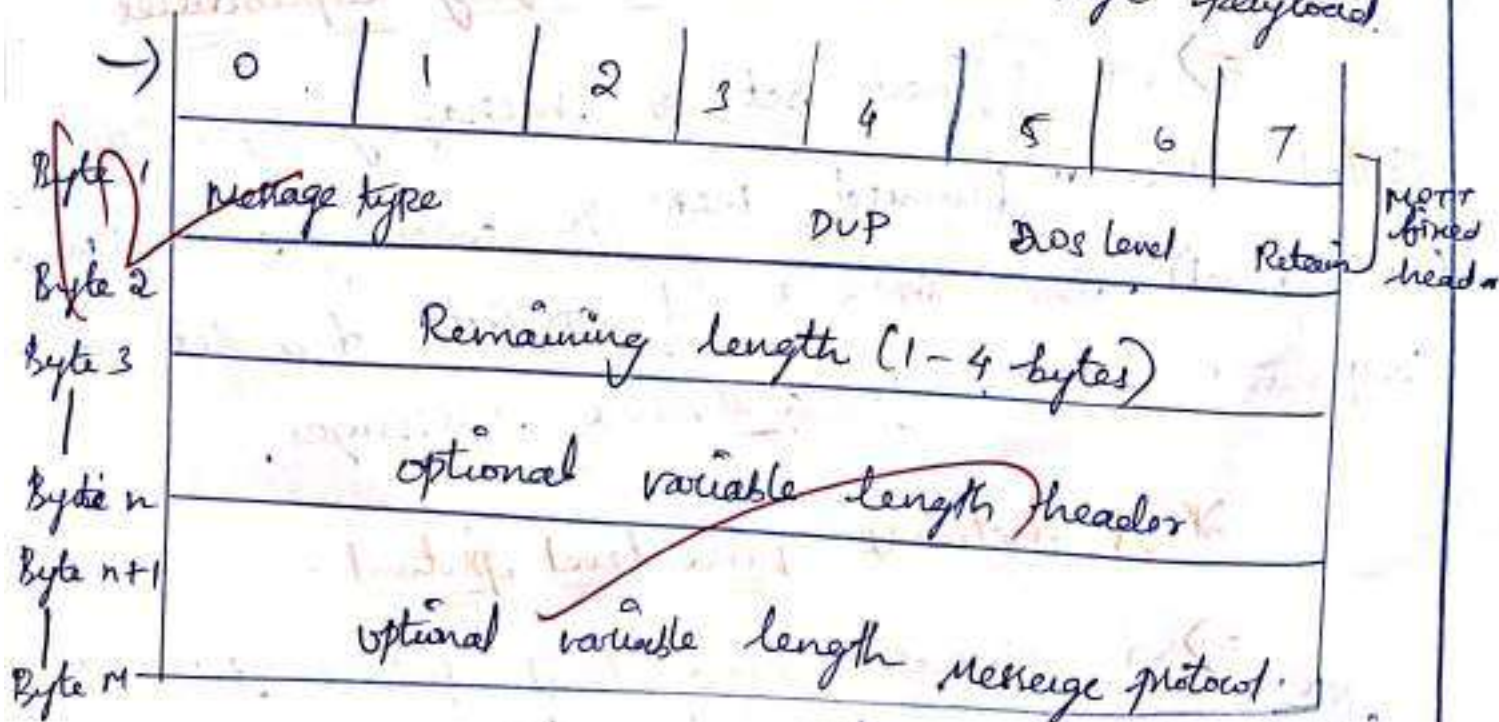 payload.
0 1 2 3 4 5 6 7
Byte 1 Message type DUP QOS Level Retain MQTT fixed header
Byte 2
Remaining length (1-4 bytes)
Byte 3
optional variable length header
Byte n
Byte n+1
optional variable length Message protocol.
Byte M